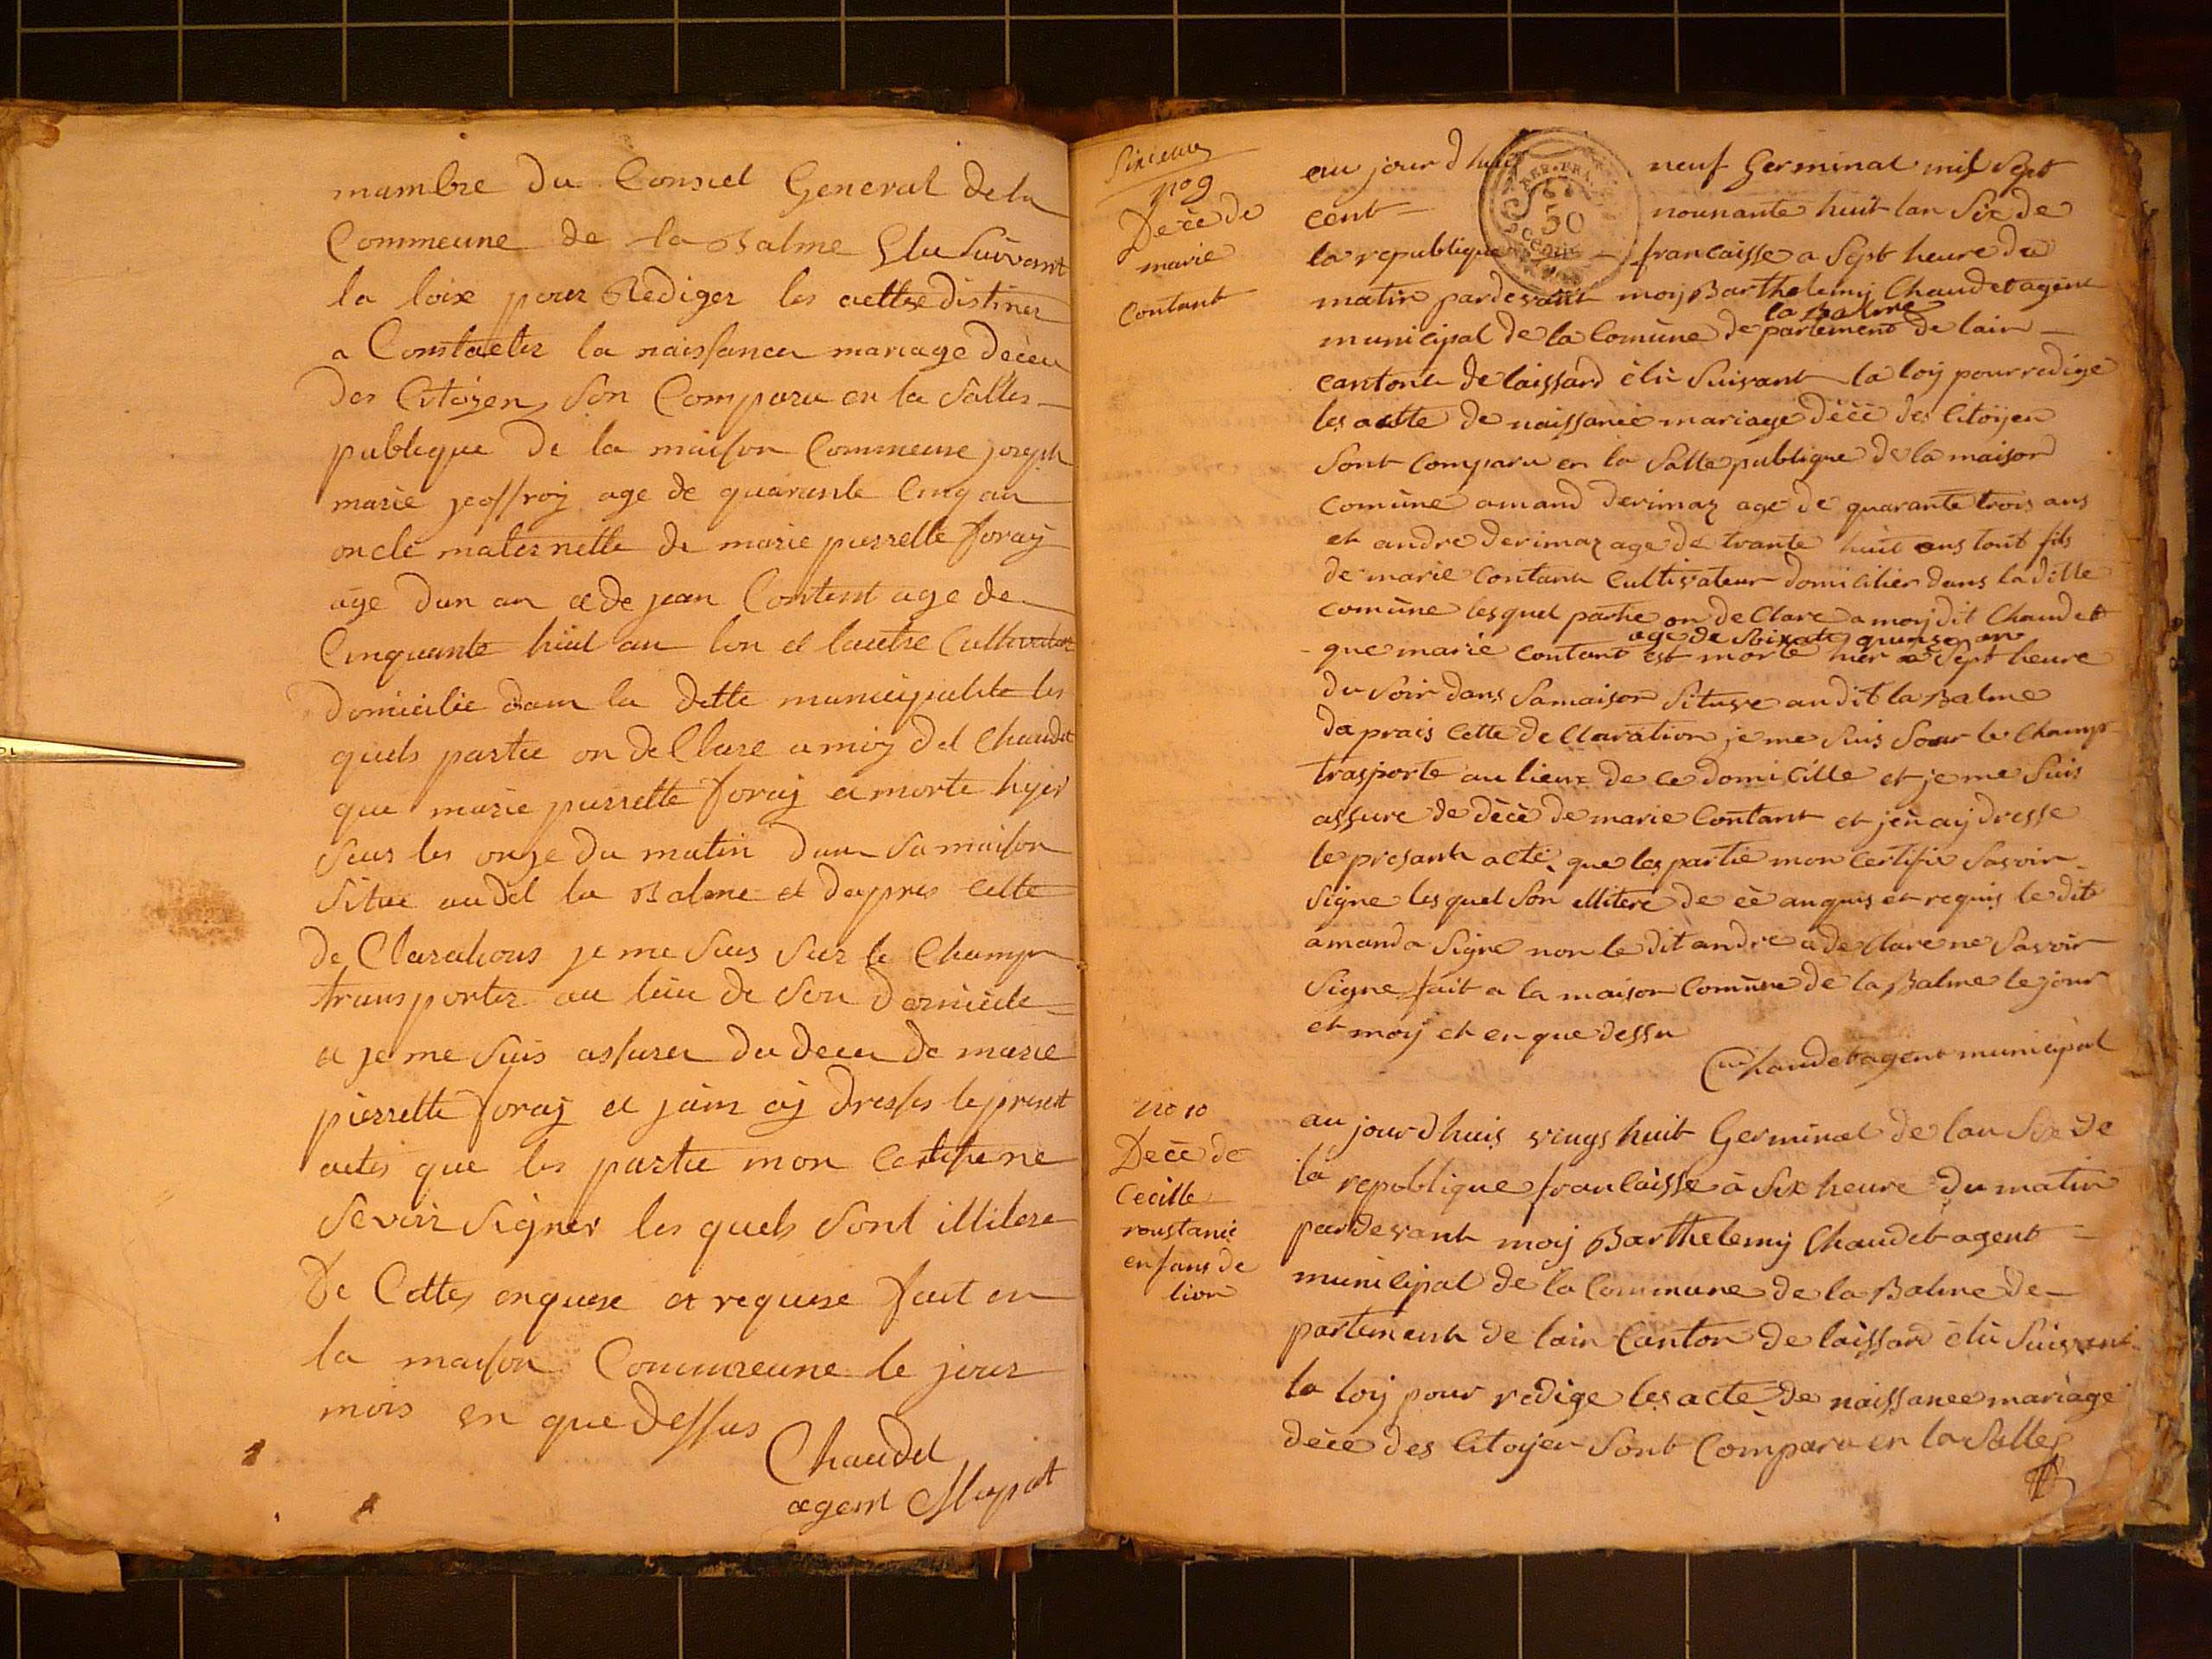 mambre du Consiel General de la
Commeune de la Balme Elu suivant
la loix pour Rediger les acttes distinez
a Constaeter la naissancu mariage deceu
des Citoyen son Comparu en la salles
publique de la maison Commeune joseph
marie jeoffroy age de quarante cinq an
oncle maternelle de marie pierrette foray
age dun an et de jean Contant age de
Cinquante huit an lun et lautre Cultivateur
domicilie dans la ditte municipalite les
quels partie on de Clare a moy dit Chaudet
que marie pierrette foray et morte hyer
seur les onze du matin dans sa maison
situe au dit la Balme et daypres cette
de Clarations je me suis sur le Champ
transporter au lieu de son domicile
et je me suis assurer du deceu de marie
pierrette foray et jain ay dresses le present
actes que les partie mon Certifie ne
sevoir signer les quels sont illitere
de Cettes enquere et requere fait en
la maison Commeune le jour
mois en que dessus
Chaudet
agent Mupal
Sixieme
no 9
Decè de
marie
Contant
au jour d huis neuf Germinal mil sept
cent nounante huit lan six de
la republique francaisse a sept heure du
matin pardevant moy Barthelemy Chaudet agent
la Balme
municipal de la Comùne de partement de lain
cantont de laissard èlù suivant la loy pour redige
les actte de naissance mariage dècè des Citoyen
sont comparu en la salle publique de la maison
comùne amand derimaz age de quarante trois ans
et andre derimaz age de trante huit ans tout fils
de marie Contant Cultivateur domicilier dans la ditte
comùne lesquel partie on de Clare a moy dit Chaudet
age de soixate quinse an
que marie contant est morte hier a sept heure
du soir dans sa maison situse au dit la Balme
da prais cette de Claration je me suis sour le Champ
trasporte au lieux de ce domicille et je me suis
assure de dècè de marie Contant et jen ay dresse
le presant acte que les partie mon certifie savoir
signe les quel son illitere de cè anquis et requis le dit
amand a signe non le dit andre a de Clare ne savoir
signe fait a la maison Comùne de la Balme le jour
et moy et en que dessu
Chaudet agent municipal
no 10
Decè de
Cecille
roustanie
enfans de
lion
au jour d huis vingt huit Germinal de lan six de
la repoblique francaisse à six heure du matin
pardevant moy Barthelemy Chaudet agent
municipal de la Commune de la Balme de
partement de lain Canton de laissard èlù suivant
la loy pour redige les acte de naissance mariage
dècè des Citoyen sont Comparu en la salle